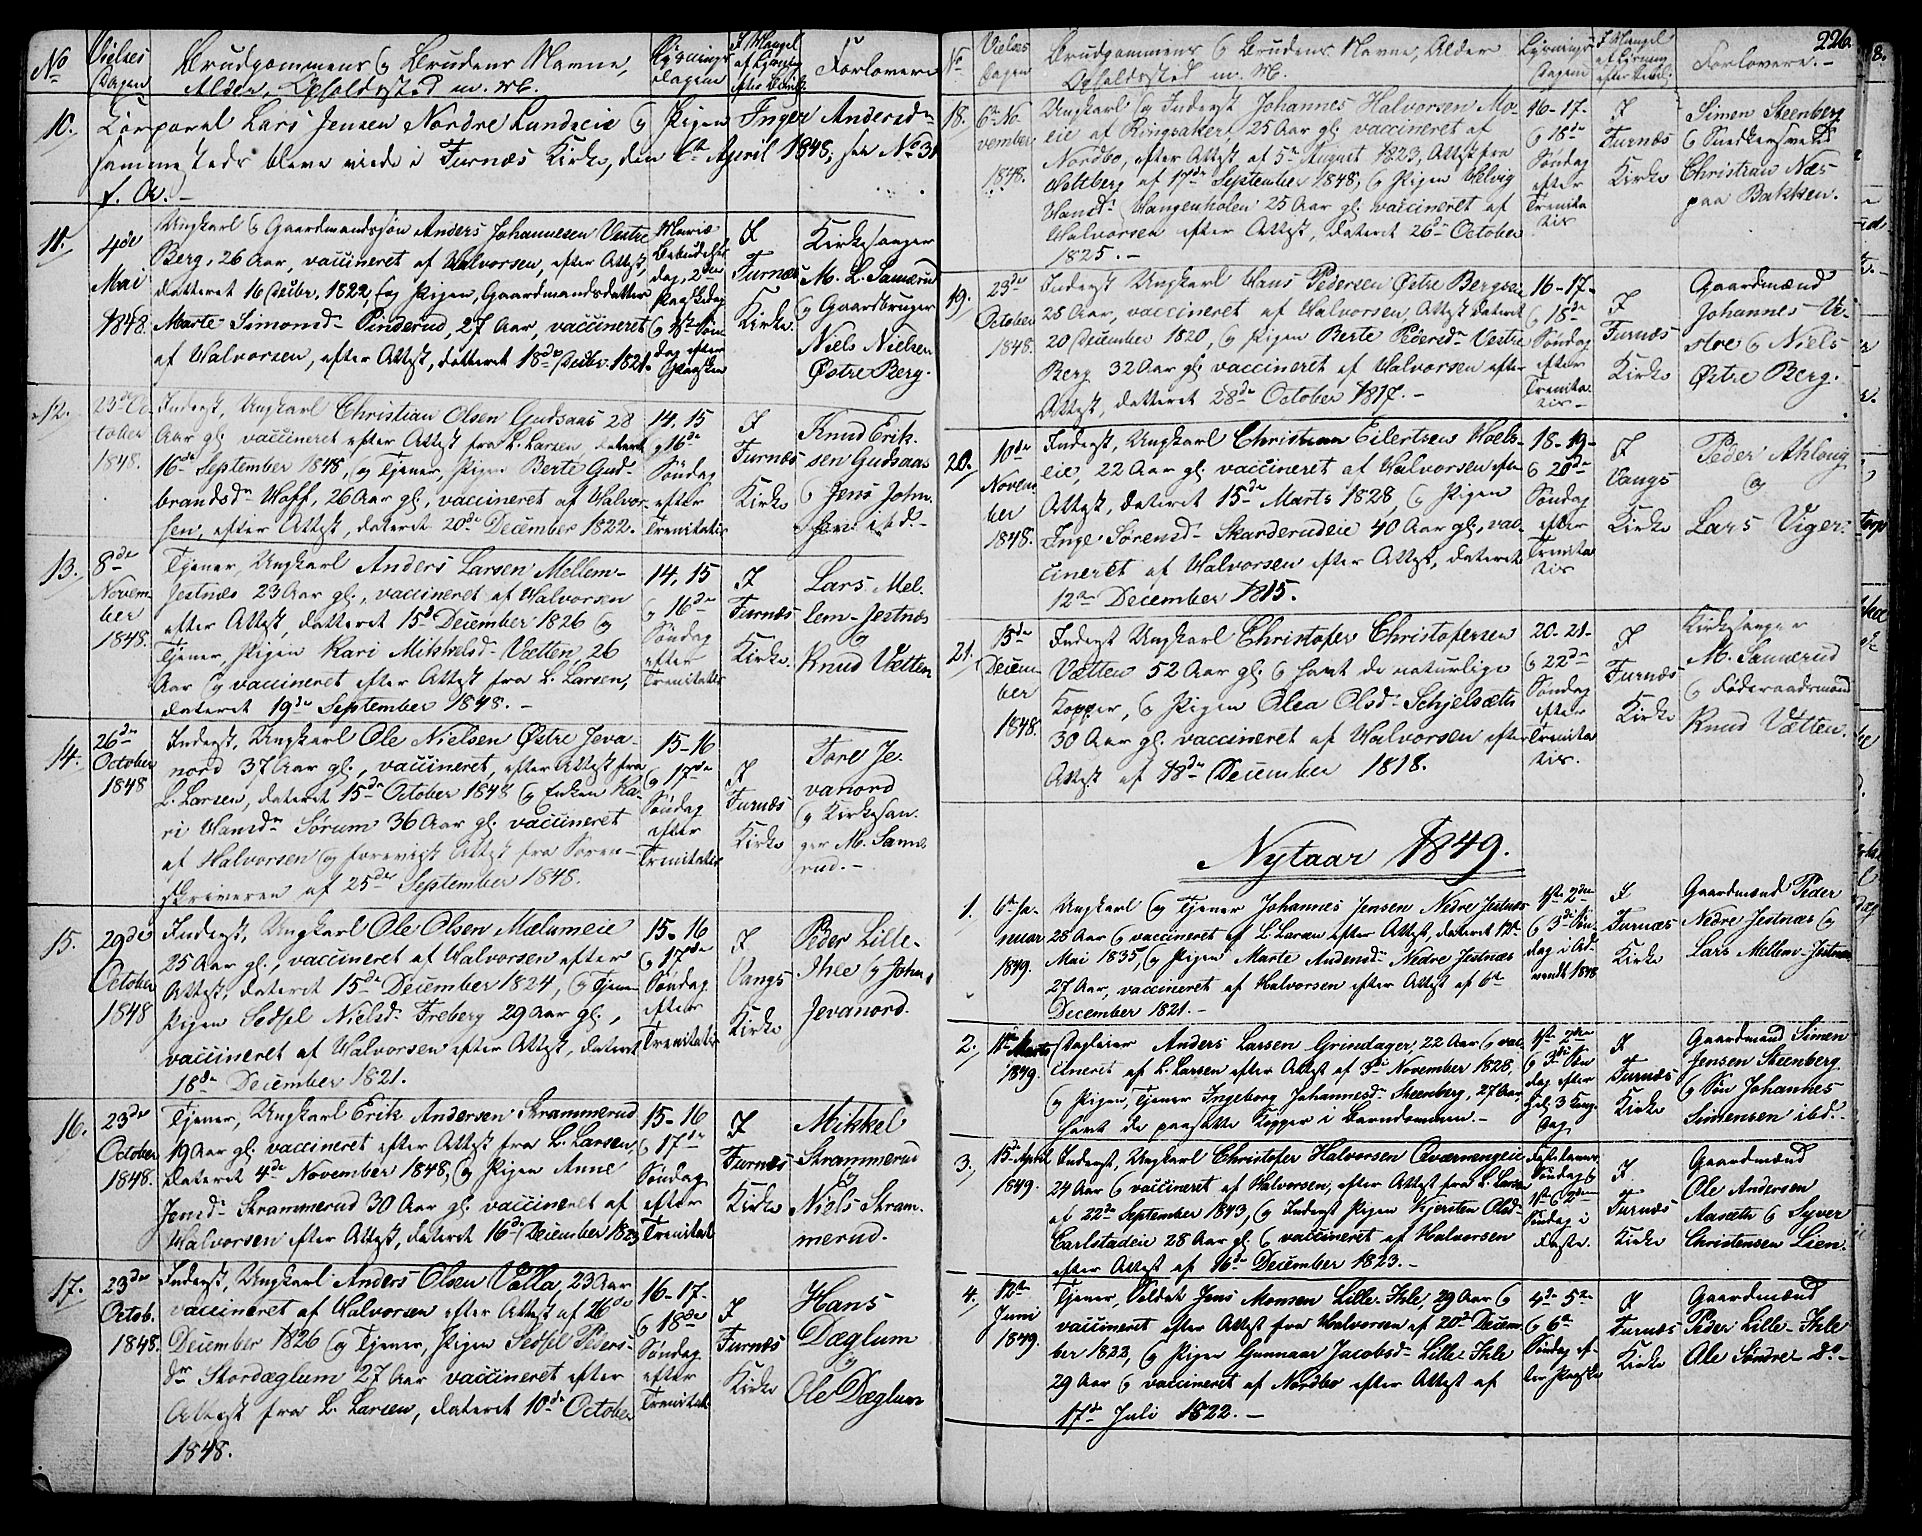 No
Vielses
Dagen
Brudgommens og Brudens Navne,
Alder, Opholdssted m. M.
Lysnings
Dagene
I Mangel
af Lysning
Forlovere
10. Corporal Lars Jensen Nordre Lundseie og Pigen Inger Andersdr
sammesteds bleve viede i Furnæs Kirke, den April 1848, see No 31
f. A. -
11.
4de
Mai
1848.
Ungkarl og Gaardmandssøn Anders Johannesen Vestre
Berg, 26 Aar, vaccineret af Halvorsen, efter Attest,
datteret 16 Decbr. 1822, og Pigen, Gaardmandsdatter
Marte Simonsd- Pinderud, 27 Aar, vaccineret
af Halvorsen, efter Attest, datteret 18de Decbr. 1821.
Mariæ
Bebudelses
dag, 2den
Paaskedag
og 1ste Søn-
dag efter
Paasken
I
Furnæs
Kirke.
Kirkesanger
M. L. Samerud
og Gaardbruger
Niels Nielsen
Østre Berg.
12.
23de Oc
tober
1848.
Inderst, Ungkarl Christian Olsen Gudsaas 28
Aar gl. vaccineret efter Attest fra L. Larsen, dateret
16de September 1848, og Tjener, Pigen Berte Gud-
brandsdr Hoff, 26 Aar gl., vaccineret af Halvor-
sen, efter Attest, dateret 20de December 1822.
14, 15
og 16de
Søndag
efter
Trinitatis
I
Furnæs
Kirke
Knud Erik-
sen Gudsaas
og Jens John-
sen ibd. -
13.
8de
Novem-
ber
1848.
Tjener, Ungkarl Anders Larsen Mellem-
Jestnæs 23 Aar gl., vaccineret af Halvorsen
efter Attest, datteret 15de December 1826 og
Tjener, Pigen Kari Mikkelsd- Vætten, 26
Aar og vaccineret efter Attest fra L. Larsen,
dateret 19de September 1848. -
14, 15
og 16de
Søndag
efter
Trinitatis
I
Furnæs
Kirke.
Lars Mel-
lem-Jestnæs
og
Knud Vætten
14.
26de
October
1848
Inderst, Ungkarl Ole Nielsen Østre Jeva-
nord 37 Aar gl., vaccineret, efter Attest fra
L. Larsen, dateret 15de October 1848 og Enken Ka-
ri Hansdr Sørum 36 Aar gl. vaccineret
af Halvorsen og forevist Attest fra Soren-
skriveren af 25de September 1848.
15-16
og 17de
Søndag
efter
Trinitatis
I
Furnæs
Kirke
Tore Je-
vanord
og Kirkesan-
ger M. Same-
rud. -
15.
29de
October
1848
Inderst, Ungkarl Ole Olsen Mælumeie
25 Aar gl., vaccineret af Halvorsen efter
Attest, dateret 15de December 1824, og Tjener
Pigen Sedsel Nielsd- Freberg 29 Aar gl.,
vaccineret af Halvorsen efter Attest, dateret
18de December 1821.
15-16
og 17de
Søndag
efter
Trinitatis
I
Vangs
Kirke
Peder Lille-
Ihle og Johan
Jevanord.
16.
23de
October
1848.
Tjener, Ungkarl Erik Andersen Skrammerud
19 Aar gl. vaccineret efter Attest fra L. Larsen,
dateret 4de November 1848, og Pigen Anne
Jensd- Skrammerud 30 Aar gl. vaccineret af
Halvorsen efter Attest, dateret 16de December 1823
15-16
og 17de
Søndag
efter
Trinitat.
I
Furnæs
Kirke
Mikkel
Skrammerud
og
Niels Skram-
merud.
17.
23de
Octob.
1848.
Inderst, Ungkarl Anders Olsen Valla, 23 Aar
vaccineret af Halvorsen efter Attest af 26de
December 1826 og Tjener, Pigen Sedsel Peders-
dr Stordæglum 27 Aar vaccineret efter
Attest fra L. Larsen, dateret 10de October
1848.
16-17-
og 18de
Søndag
efter
Trinitat.
I
Furnæs
Kirke
Hans
Dæglum
og
Ole Dæglum
226.
No
Vielses
Dagen
Brudgommens og Brudens Navne, Alder
Opholdssted m. M.
Lysnings
Dagene
I Mangel
af Lysning
Forlovere. -
18.
6te No
vember
1848.
Ungkarl og Inderst Johannes Halvorsen Mo-
eie af Ringsaker, 25 Aar gl. vaccineret af
Nordbo, efter Attest af 5te August 1823, Attest fra
Holtberg af 17de September 1848, og Pigen Helvig
Hansd- Wangenholen 25 Aar gl. vaccineret af
Halvorsen efter Attest, dateret 26de October
1825. -
16-17-
og 18de
Søndag
efter
Trinita
tis
I
Furnæs
Kirke
Simen Steenberg
og Snedkersvend
Christian Næs
paa Bakken.
19.
23de
October
1848.
Inderst Ungkarl Hans Pedersen Østre Bergseie
25 Aar, vaccineret af Halvorsen, Attest dateret
20 December 1820, og Pigen Berte Pedersd- Vestre
Berg 32 Aar gl. vaccineret af Halvorsen efter
Attest, datteret 28de October 1817. -
16-17-
og 18de
Søndag
efter
Trinita-
tis -
I
Furnæs
Kirke
Gaardmænd
Johannes Ve-
stre og Niels
Østre Berg.
20.
10de
Novem
ber
1848.
Inderst, Ungkarl Christian Eilertsen Hoels-
eie, 22 Aar gl. vaccineret af Halvorsen efter
Attest, dateret 15de Marts 1828, og Pigen
Inge Sørensd- Skarderudeie 40 Aar gl., vac-
cineret af Halvorsen efter Attest, dateret
12te December 1815.
18-19-
og 20de
Søndag
efter
Trinita
tis
I
Vangs
Kirke
Peder Ahloug
og
Lars Viger.
21.
15de
Decem-
ber
1848.
Inderst Ungkarl Christofer Christofersen
Vætten 52 Aar gl. og havt de naturlige
Kopper, og Pigen Olea Olsd- Schjelsæth
30 Aar gl. vaccineret af Halvorsen efter
Attest af 18de December 1818.
20-21-
og 22de
Søndag
efter
Trinita
tis.
I
Furnæs
Kirke
Kirkesanger
M. Samerud
og Føderaadsmand
Knud Vætten.
Nytaar 1849.
1.
6te Ja-
nuar
1849.
Ungkarl og Tjener Johannes Jensen Nedre Jestnæs
28 Aar og vaccineret af L. Larsen efter Attest, dateret
Mai 1835, og Pigen Marte Andersd- Nedre Jestnæs
27 Aar, vaccineret af Halvorsen efter Attest af 6te
December 1821. -
1ste 2den
og 3die Søn
dag i Ad-
vendt 1848
I
Furnæs
Kirke
Gaardmænd Peder
Nedre Jestnæs og
Lars Mellem-Jestnæs
2.
Marts
1849.
Anders Larsen Grindager, 22 Aar og vac-
cineret af L. Larsen efter Attest af 3die November 1828,
og Pigen, Tjener Ingeborg Johannesd- Steenberg, 27 Aar
havt de paasatte Kopper i Barndommen. -
1ste 2den
og 3die Søn
dag efter
Hel. 3 Kong.
Dag.
I
Furnæs
Kirke
Gaardmand Simen
Jensen Steenberg
og Søn Johannes
Simensen ibd. -
3.
15de April
1849.
Inderst, Ungkarl Christofer Halvorsen Qværnengeie
24 Aar og vaccineret af Halvorsen, efter Attest fra L. Larsen
af 22de September 1843, og Inderst Pigen Kjersten Olsd-
Carlstadeie 28 Aar gl. og vaccineret af Halvorsen
efter Attest af 16de December 1823. -
Fastelavns
Søndag og
1ste og 2den
Søndag i
Faste.
I
Furnæs
Kirke
Gaardmænd
Ole Andersen
Aasæth og Syver
Christensen Lien.
4.
12te
Juni
1849.
Tjener, Soldat Jens Monsen Lille-Ihle, 29 Aar og
vaccineret efter Attest fra Halvorsen af 20de Decem-
ber 1822, og Pigen Gunnaar Jacobsd- Lille-Ihle
29 Aar og vaccineret af Nordbo efter Attest af
17de Juli 1822. -
4de 5te
og 6te
Søndag ef-
ter Paaske
I
Furnæs
Kirke
Gaardmænd
Peder Lille-Ihle
Ole Søndre Do -